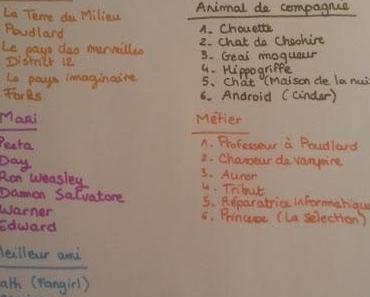 La Terre du Milieu
Poudlard
Le pays des merveilles
District 12
Le pays imaginaire
Forks
Mari
Peeta
Day
Ron Weasley
Damon Salvatore
Warner
Edward
Meilleur ami
ath (Fangirl)
Animal de compagnie
1. Chouette
2. Chat de Cheshire
3. Geai moqueur
4. Hippogriffe
5. Chat (Maison de la nuit
6. Android (Cinder)
Métier
1. Professeur à Poudlard
2. Chasseur de vampire
3. Auror
4. Tribut
5. Réparatrice informatique
6. Princesse (La sélection)